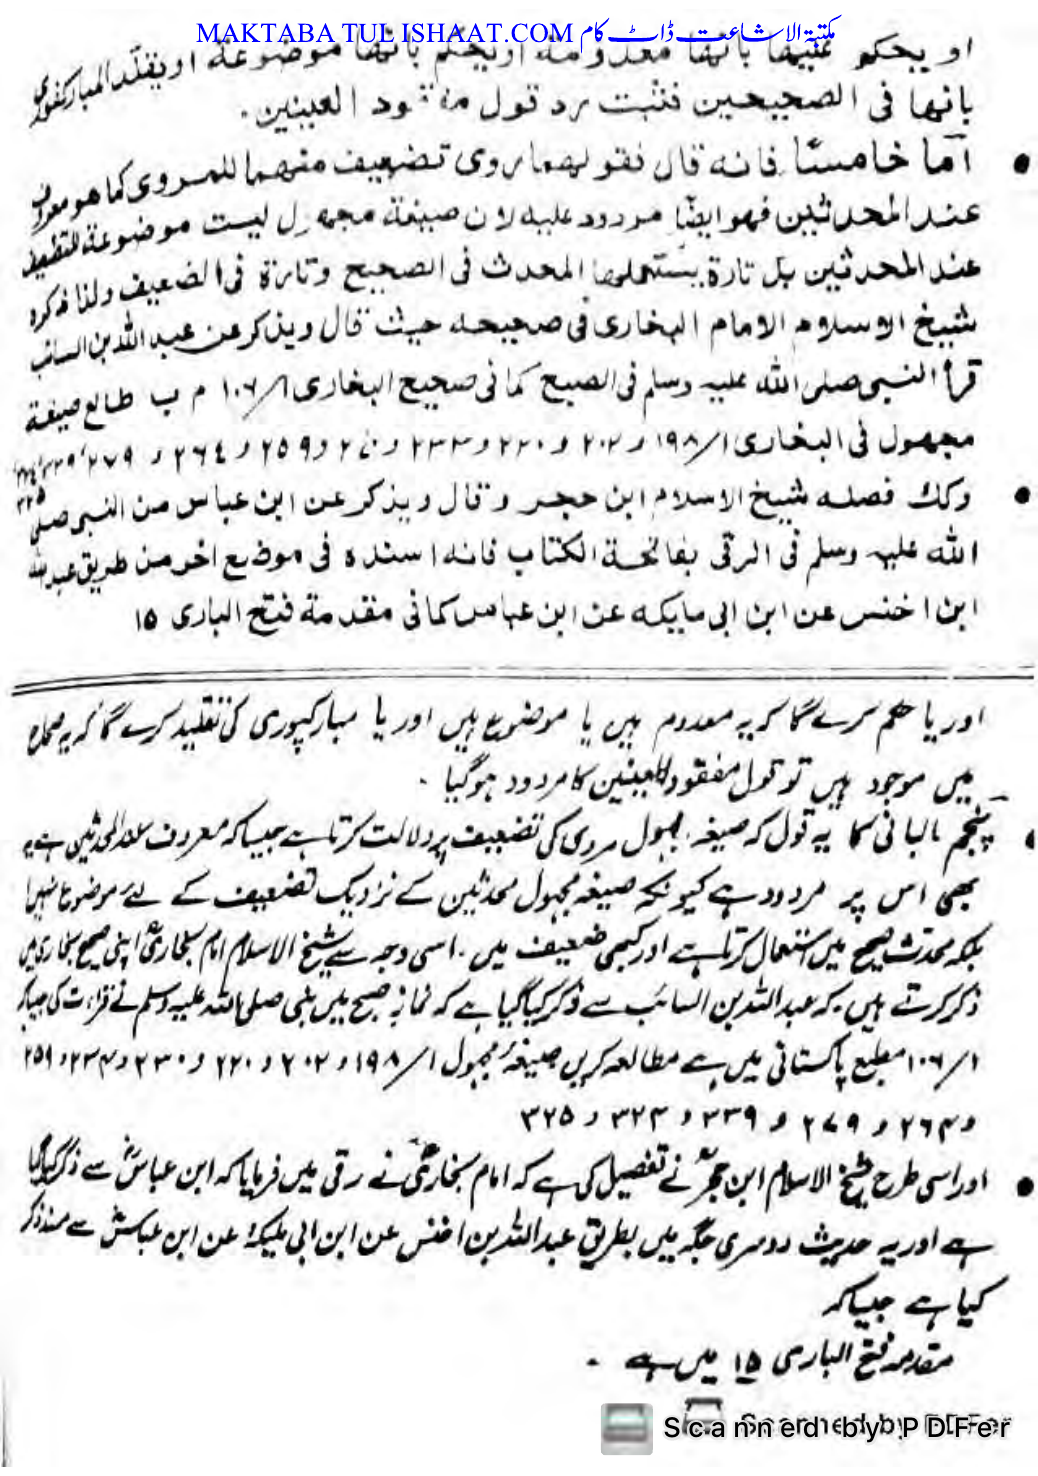 MAKTABA TUL ISHAAT.COM مکتبۃ الاشاعت ڈاٹ کام
او يحكم عليها بانها معدومة او يحكم بانها موضوعة او يقلد المباركفوری
بانها فی الصحيحين فثبت رد قول مفقود العينين.
● اما خامسًا فانه قال فقولهما روی تضعيف منهما للمروی كما هو معروف
عند المحدثين فهو ايضًا مردود عليه لان صيغة مجهول ليست موضوعة للتضعيف
عند المحدثين بل تارة يستعملها المحدث فی الصحيح وتارة فی الضعيف ولذا ذكره
شيخ الاسلام الامام البخاری فی صحيحه حيث قال ويذكر عن عبد الله بن السائب
قرأ النبی صلی الله عليه وسلم فی الصبح كما فی صحيح البخاری ١/١٠٦ م ب طالع صيغة
مجهول فی البخاری ١/١٩٨ و ٢٠٢ و ٢٢٠ و ٢٣٣ و و ٢٥٩ و ٢٦٤ و ٢٧٩
● وكذ فصله شيخ الاسلام ابن حجر وقال ويذكر عن ابن عباس من النبی صلی
الله عليه وسلم فی الرقی بفاتحة الكتاب فانه اسنده فی موضع اخر من طريق عبد الله
ابن اخنس عن ابن ابی مليكه عن ابن عباس كما فی مقدمة فتح الباری ١٥
اور یا حکم کرے گا کہ یہ معدوم ہیں یا موضوع ہیں اور یا مبارکپوری کی تقلید کرے گا کہ یہ
میں موجود ہیں تو قول مفقود العینین کا مردود ہوگیا ۔
پنجم البانی کا یہ قول کہ صیغہ مجہول مروی کی تضعیف پر دلالت کرتا ہے جیسا کہ معروف عند المحدثین ہے یہ
بھی اس پر مردود ہے کیونکہ صیغہ مجہول محدثین کے نزدیک تضعیف کے لئے موضوع نہیں
بلکہ محدث صحیح میں استعمال کرتا ہے اور کبھی ضعیف میں ۔ اسی وجہ سے شیخ الاسلام امام بخاریؒ اپنی صحیح بخاری میں
ذکر کرتے ہیں کہ عبد اللہ بن السائب سے ذکر کیا گیا ہے کہ نماز صبح میں نبی صلی اللہ علیہ وسلم نے قراءت کی جیسا کہ
١/١٠٦ مطبع پاکستانی میں ہے مطالعہ کریں صیغہ مجہول ١/١٩٨ و ٢٠٢ و ٢٢٠ و ٢٣٠ و ٢٣٣ و ٢٥٩
و ٢٦٤ و ٢٧٩ و ٣٣٩ و ٣٢٤ و ٣٢٥
● اور اسی طرح شیخ الاسلام ابن حجرؒ نے تفصیل کی ہے کہ امام بخاریؒ نے رقی میں فرمایا کہ ابن عباسؓ سے ذکر کیا گیا
ہے اور یہ حدیث دوسری جگہ میں بطریق عبد اللہ بن اخنس عن ابن ابی ملیکہ عن ابن عباسؓ سے مسند ذکر
کیا ہے جیسا کہ
مقدمہ فتح الباری ١٥ میں ہے ۔
Scanned by PDFer